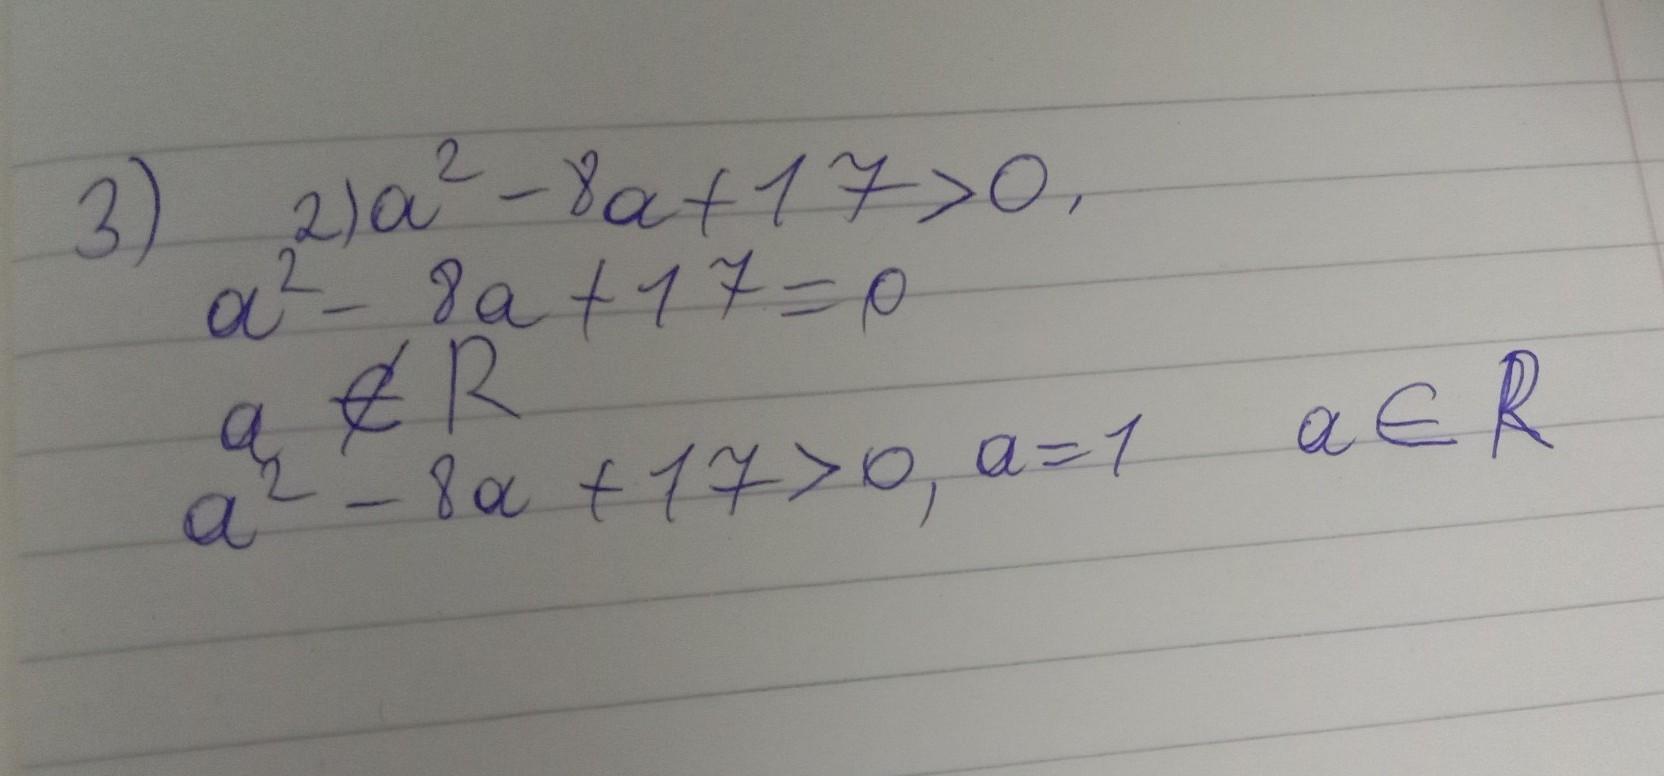 3) 2) a² - 8a + 17 > 0,
a² - 8a + 17 = 0
a ∉ R
a² - 8a + 17 > 0, a = 1 a ∈ R